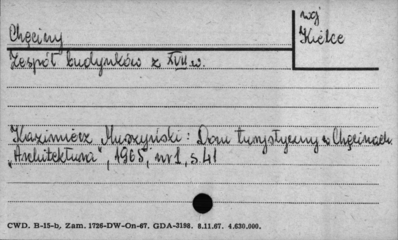 woj
Kielce
Chęciny
Zespół budynków z XVII w.
Kazimierz Muszyński: Dom turystyczny w Chęcinach.
„Architektura", 1965, nr 1, s. 41
CWD. B-15-b, Zam. 1726-DW-On-67. GDA-3198. 8.11.67. 4.630.000.